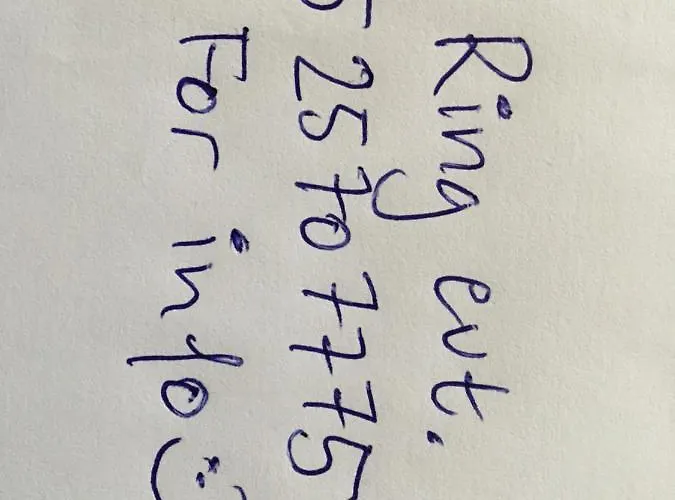 Ring evt.
25 70 77 75
For info